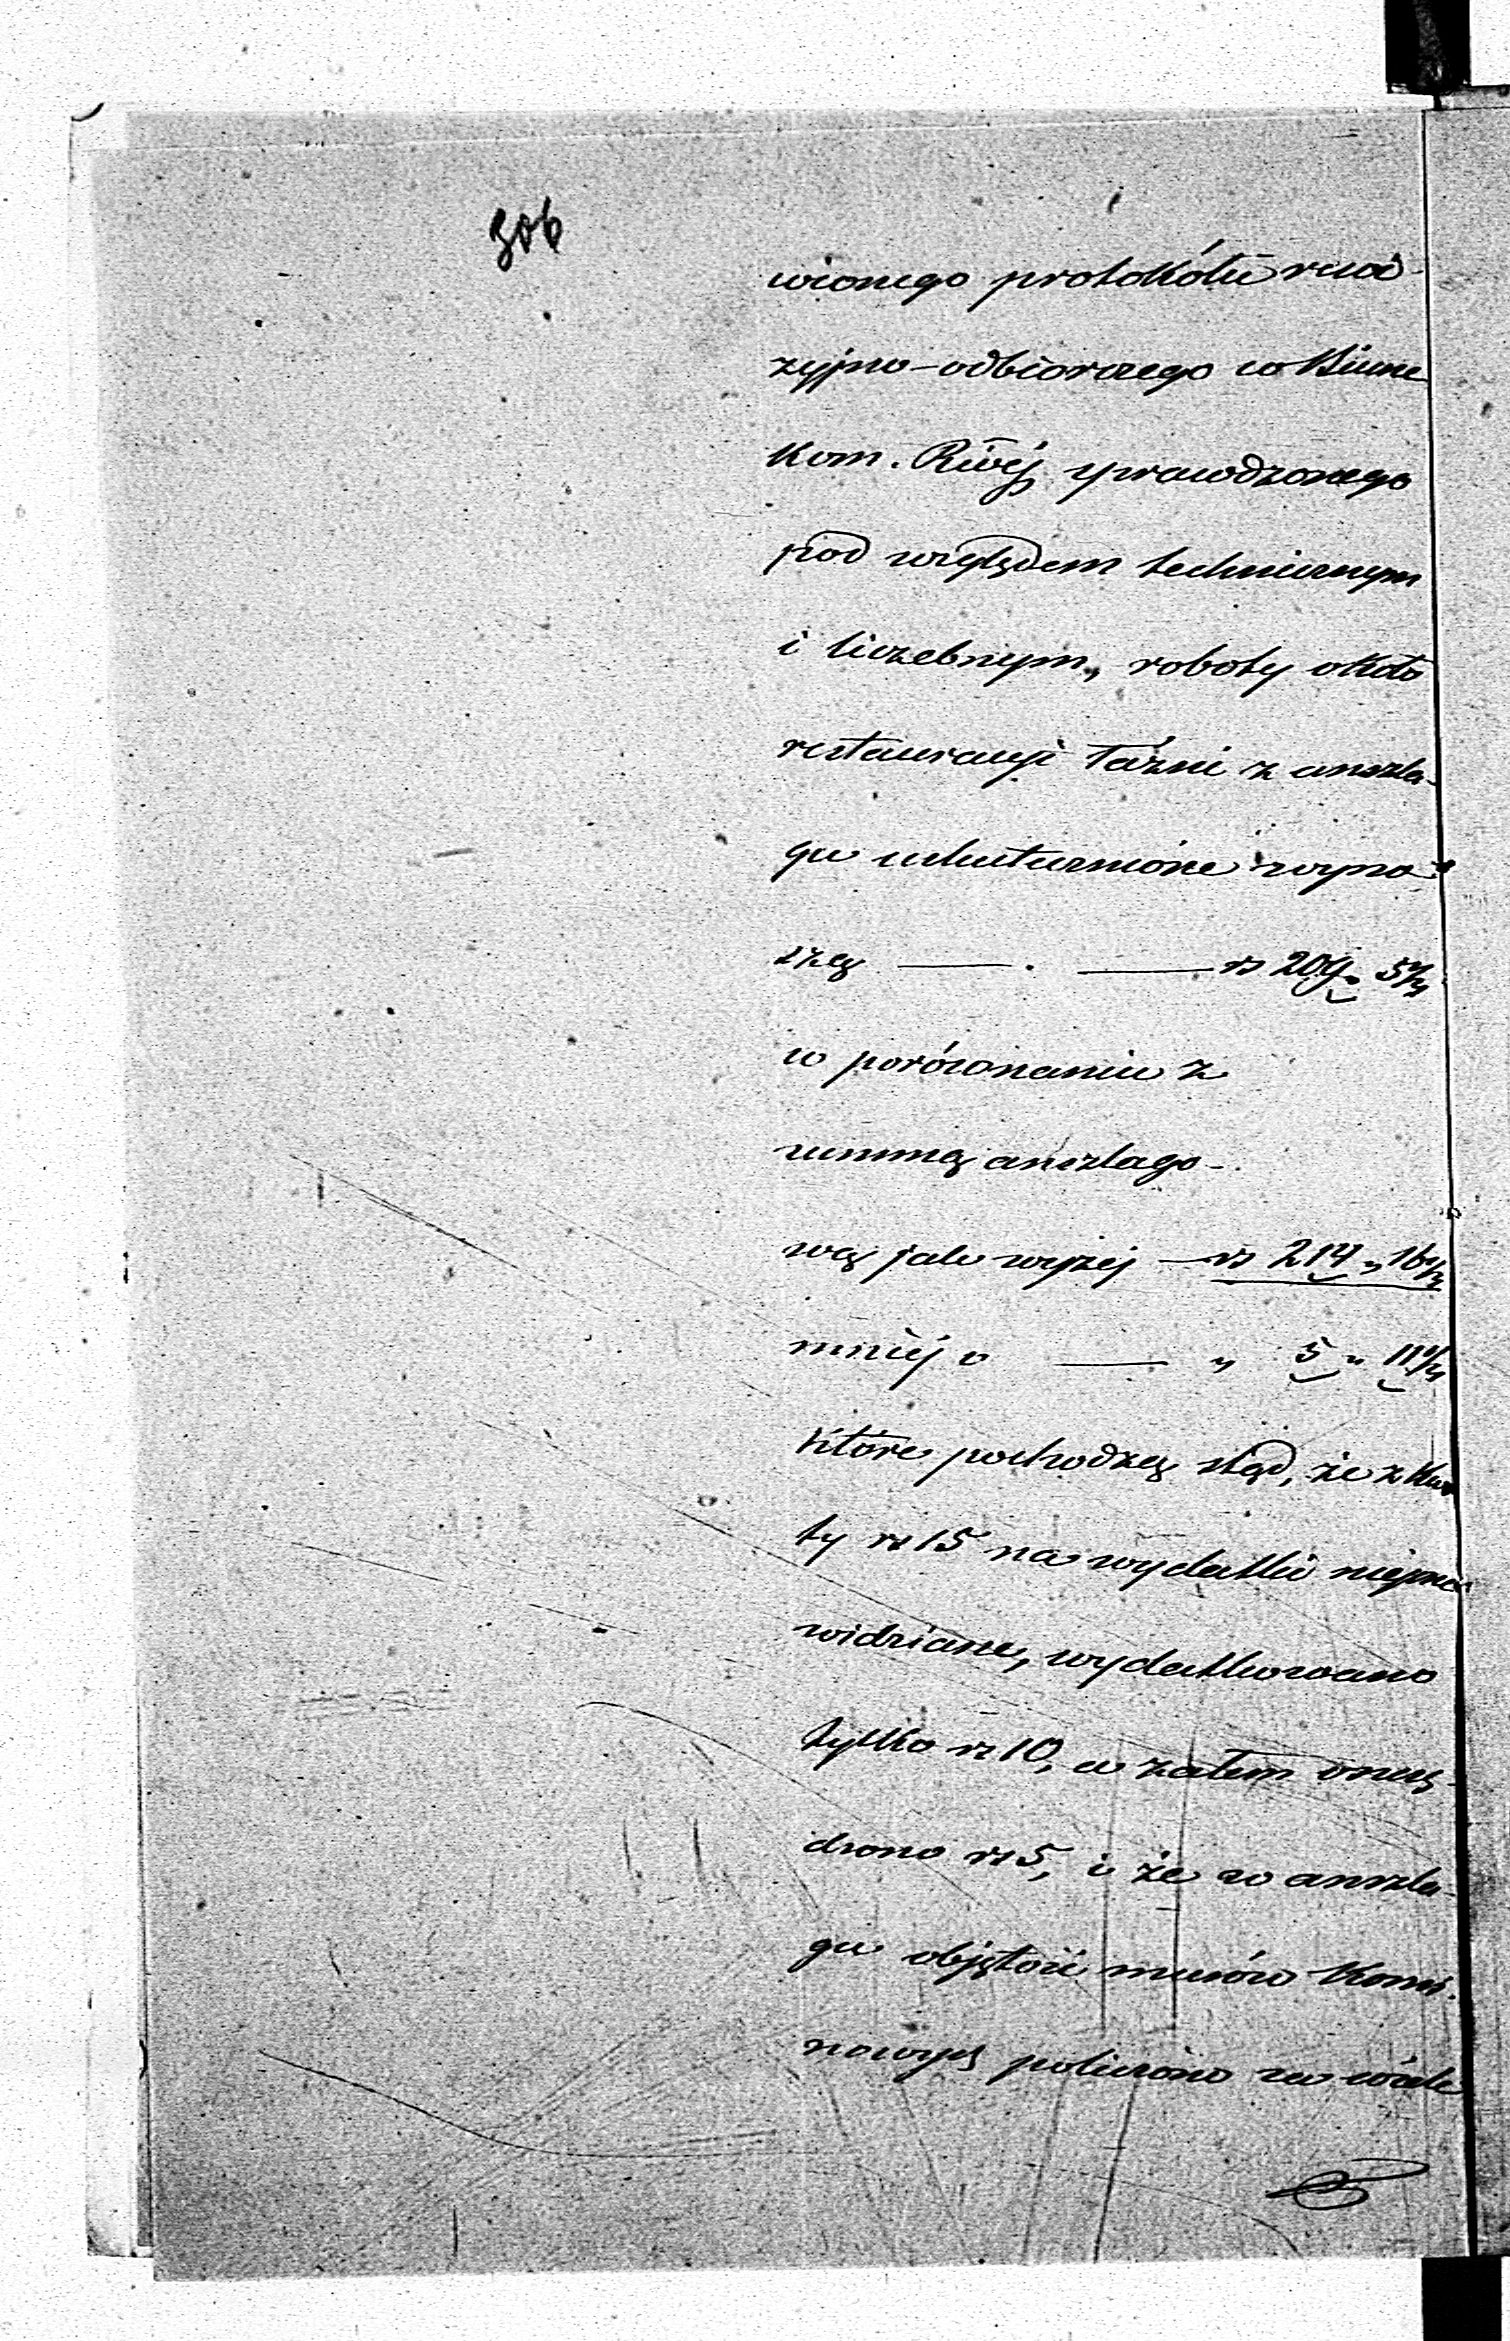 306
wionego protokółu rewi-
zyjno-odbiorczego w Biurze
Kom. Rwéj sprawdzonego
pod względem technicznym
i liczebnym, roboty około
restauracyi Łaźni z anszla-
gu uskutecznione wyno-
szą — . — rs 209 „ 5½
w porównaniu z
summą anszlago-
wą jak wyżéj — rs 214 „ 16½
mniéj o — „ 5 „ 11½
które pochodzą stąd, że z kwo
ty rs 15 na wydatki nieprze
widziane, wydatkowano
tylko rs 10, a zatem oszczę-
dzono rs 5, i że w anszla-
gu objętość murów komi-
nowych policzono za